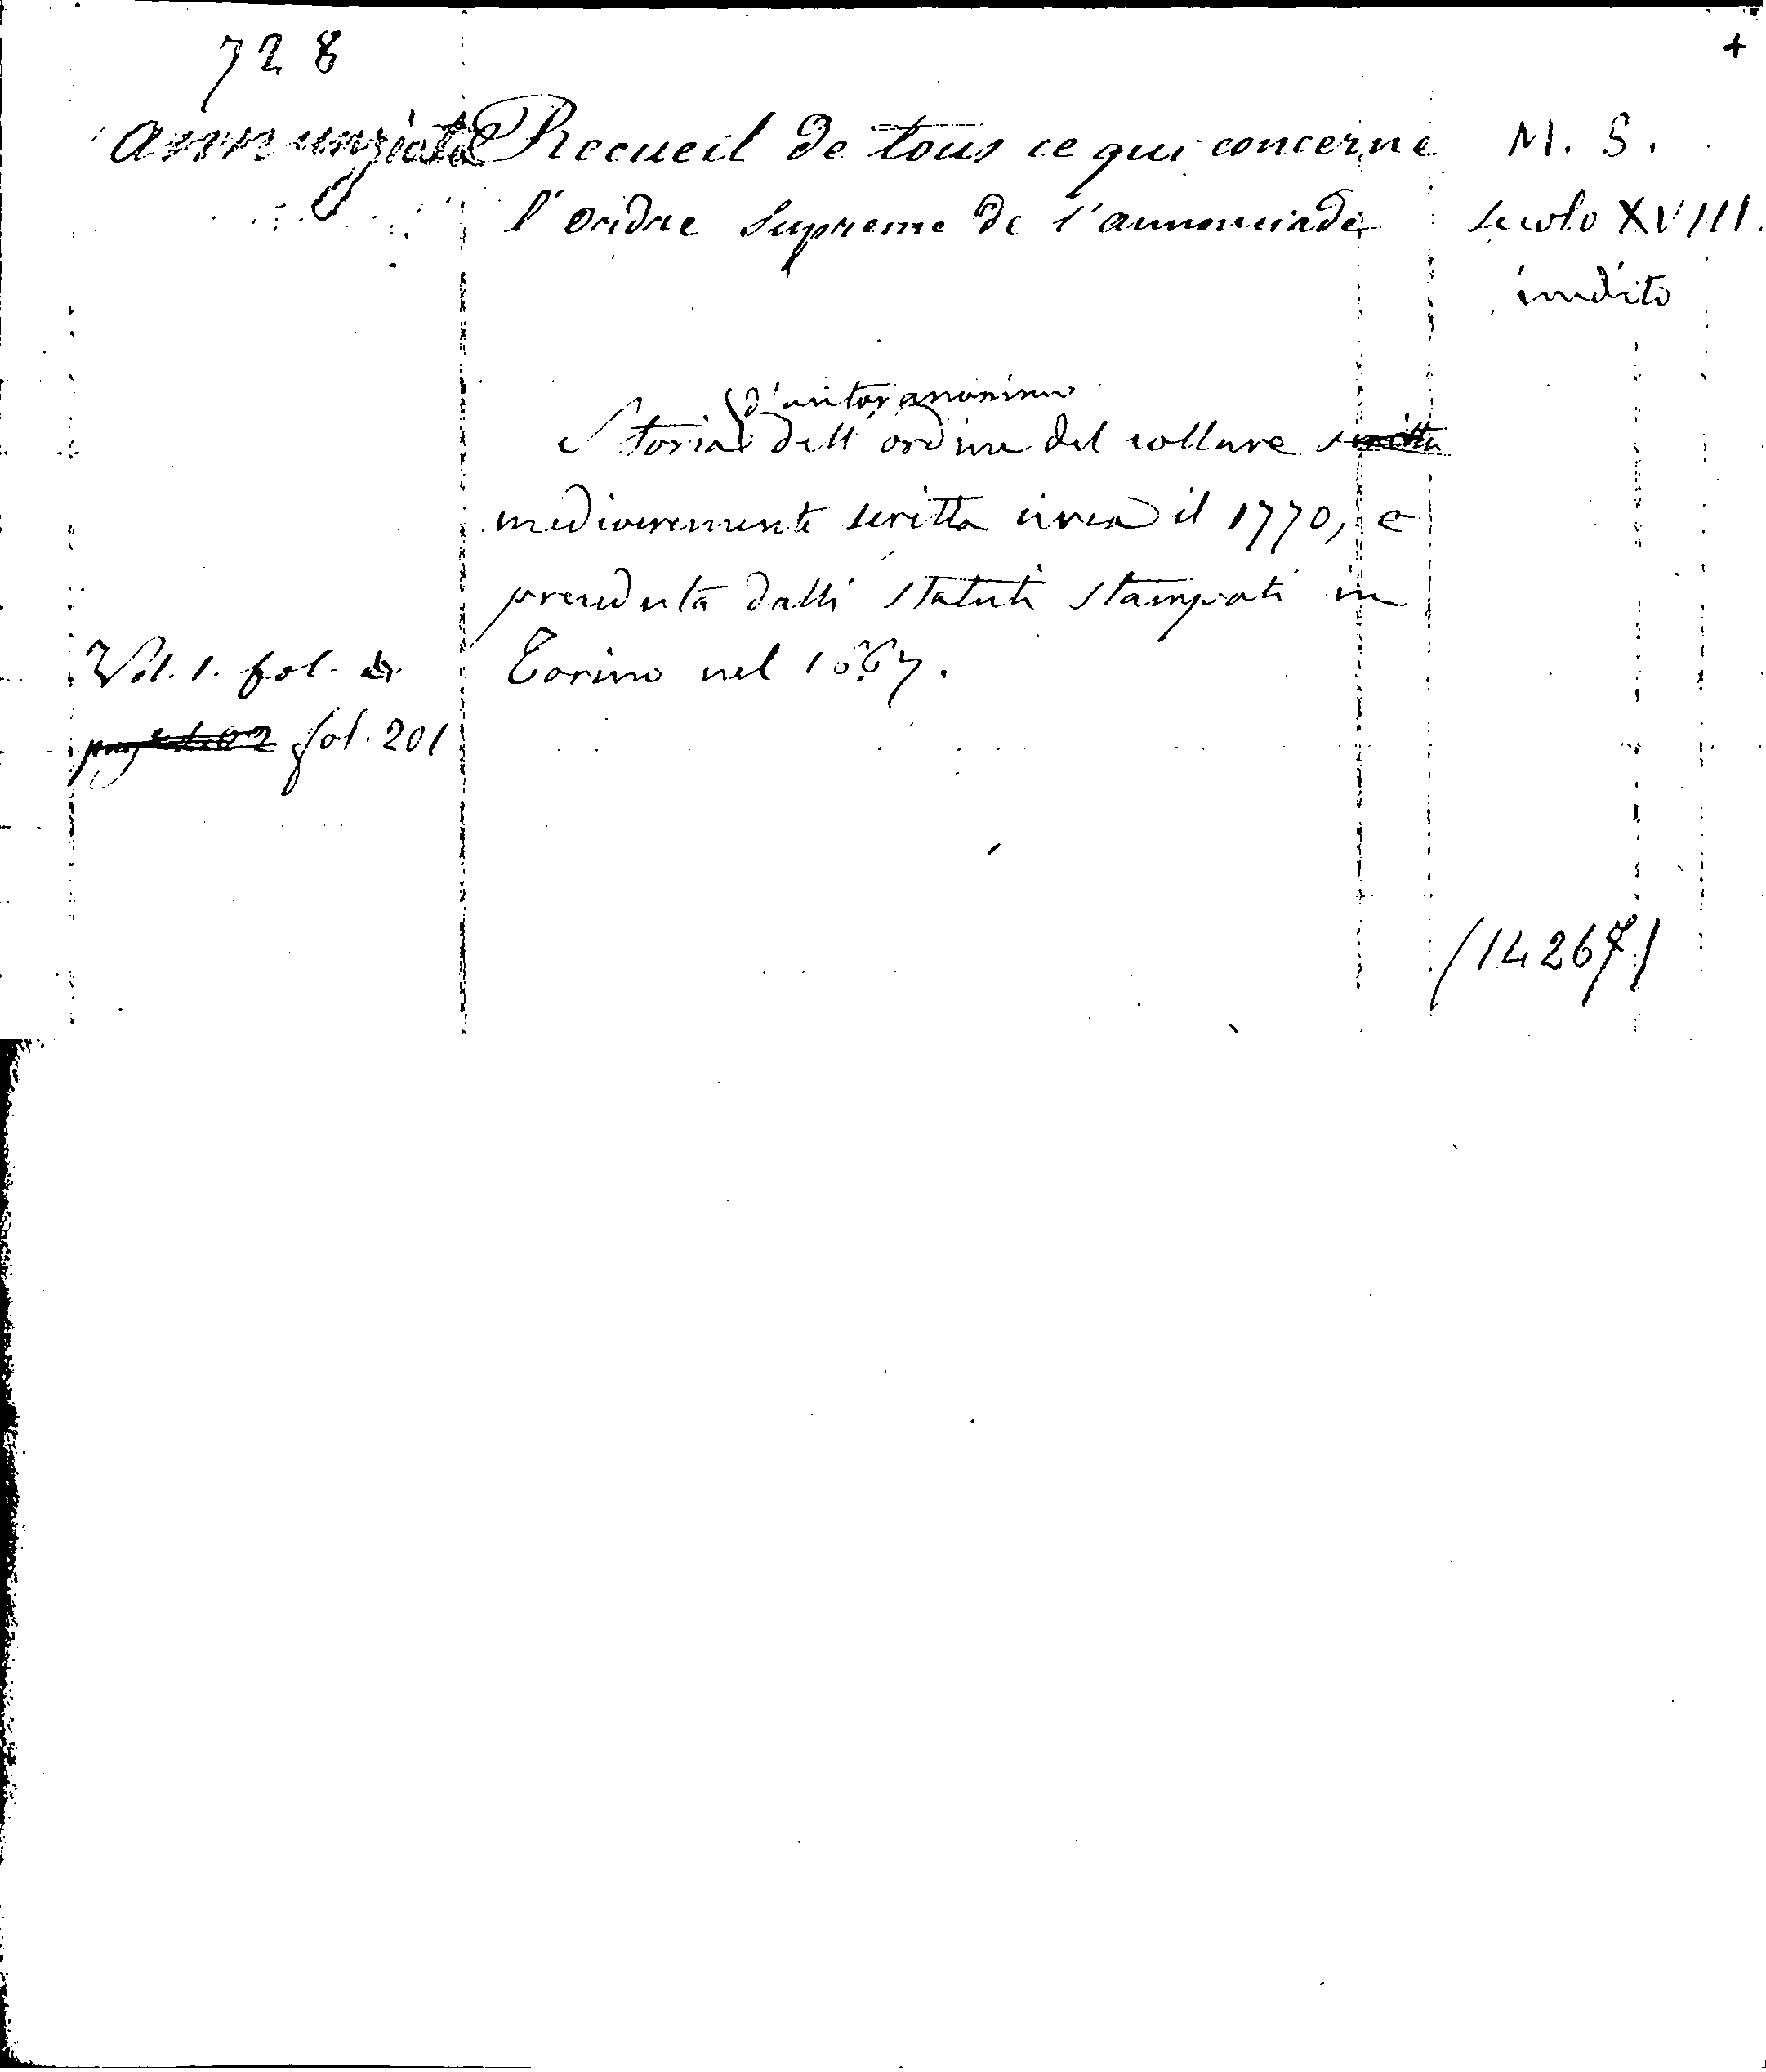 728 +
Annunziata Recueil de tous ce qui concerne M. S.
l'ordre Supreme de l'annonciade secolo XVIII.
inedito
d'autor anonimo
Storia dell'ordine del collare scritta
mediocremente scritta circa il 1770, e
preceduta dalli statuti stampati in
Vol. 1. fol. Torino nel 1667.
fol. 201
(14267)